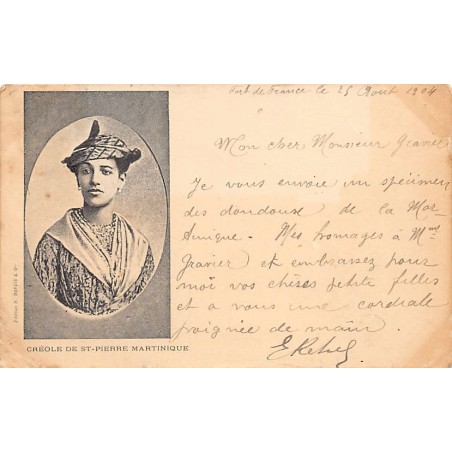 Fort de France le 25 Août 1904
Mon cher Monsieur Gravier
Je vous envoie un spécimen
des doudous de la Mar-
tinique. Mes homages à Mme
Gravier et embrassez pour
moi vos chères petite filles
et a vous une cordiale
poignée de main.
CRÉOLE DE ST-PIERRE MARTINIQUE